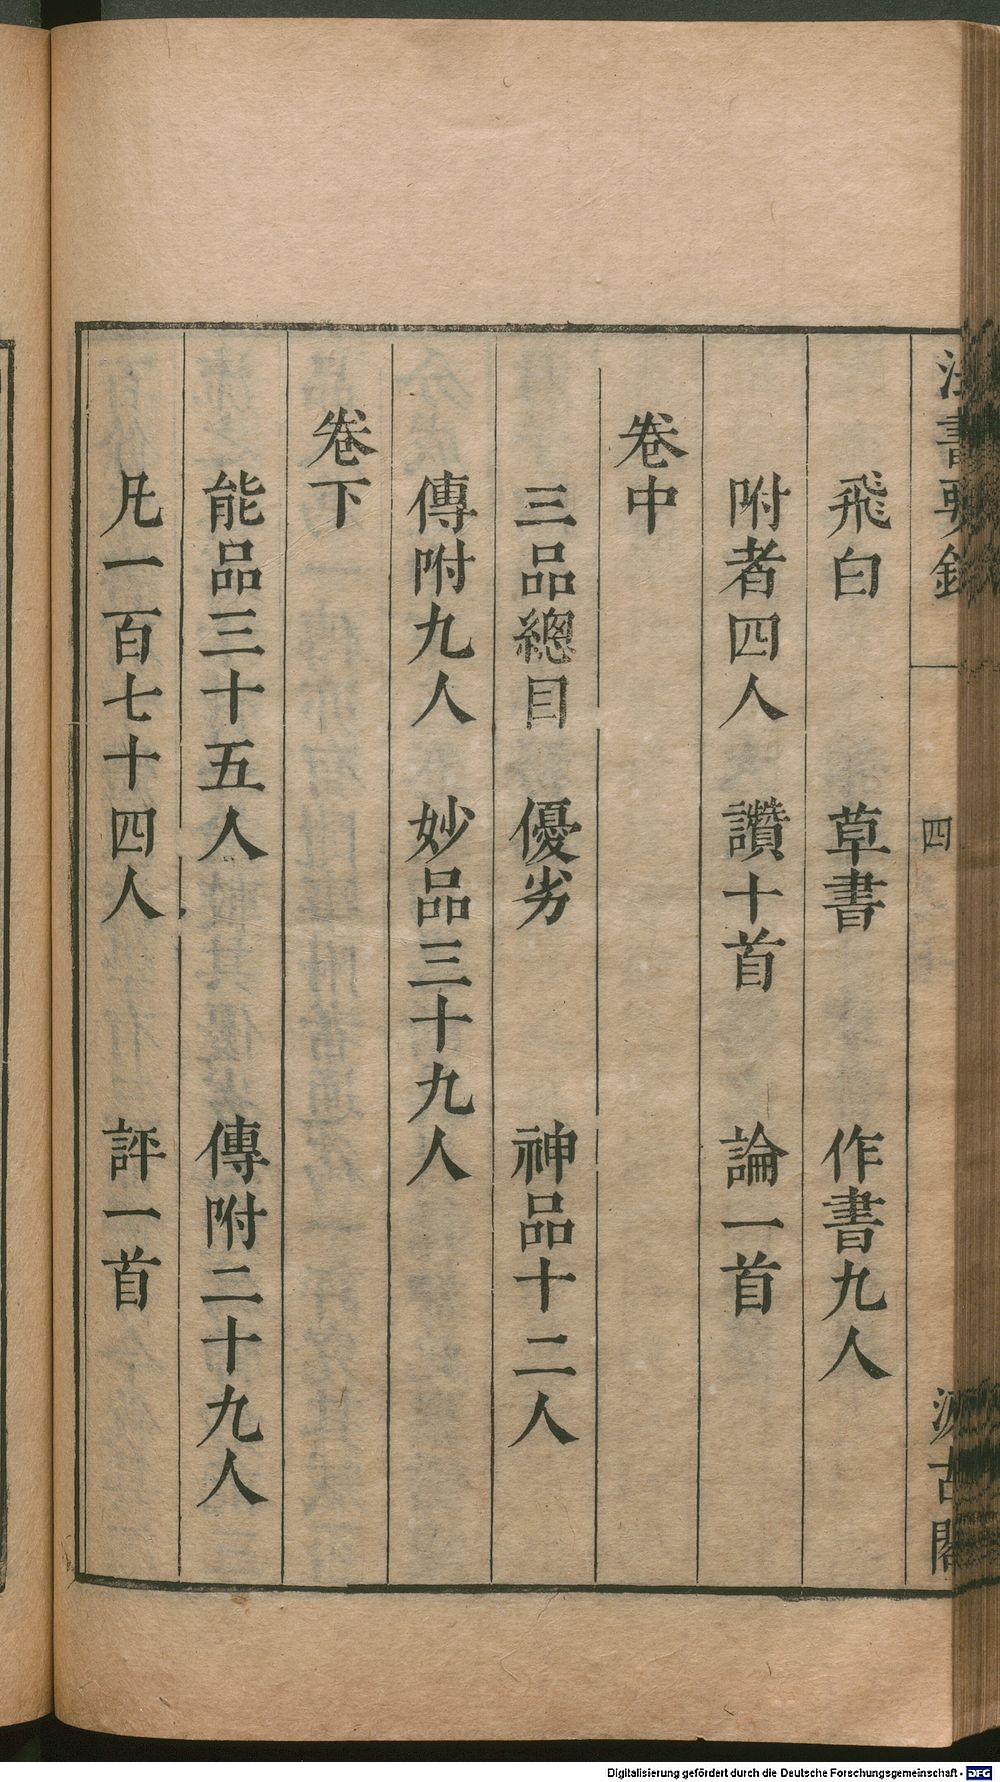 法書要錄 四 汲古閣
飛白 草書 作書九人
附者四人 讚十首 論一首
卷中
三品總目 優劣 神品十二人
傳附九人 妙品三十九人
卷下
能品三十五人 傳附二十九人
凡一百七十四人 評一首
Digitalisierung gefördert durch die Deutsche Forschungsgemeinschaft - DFG